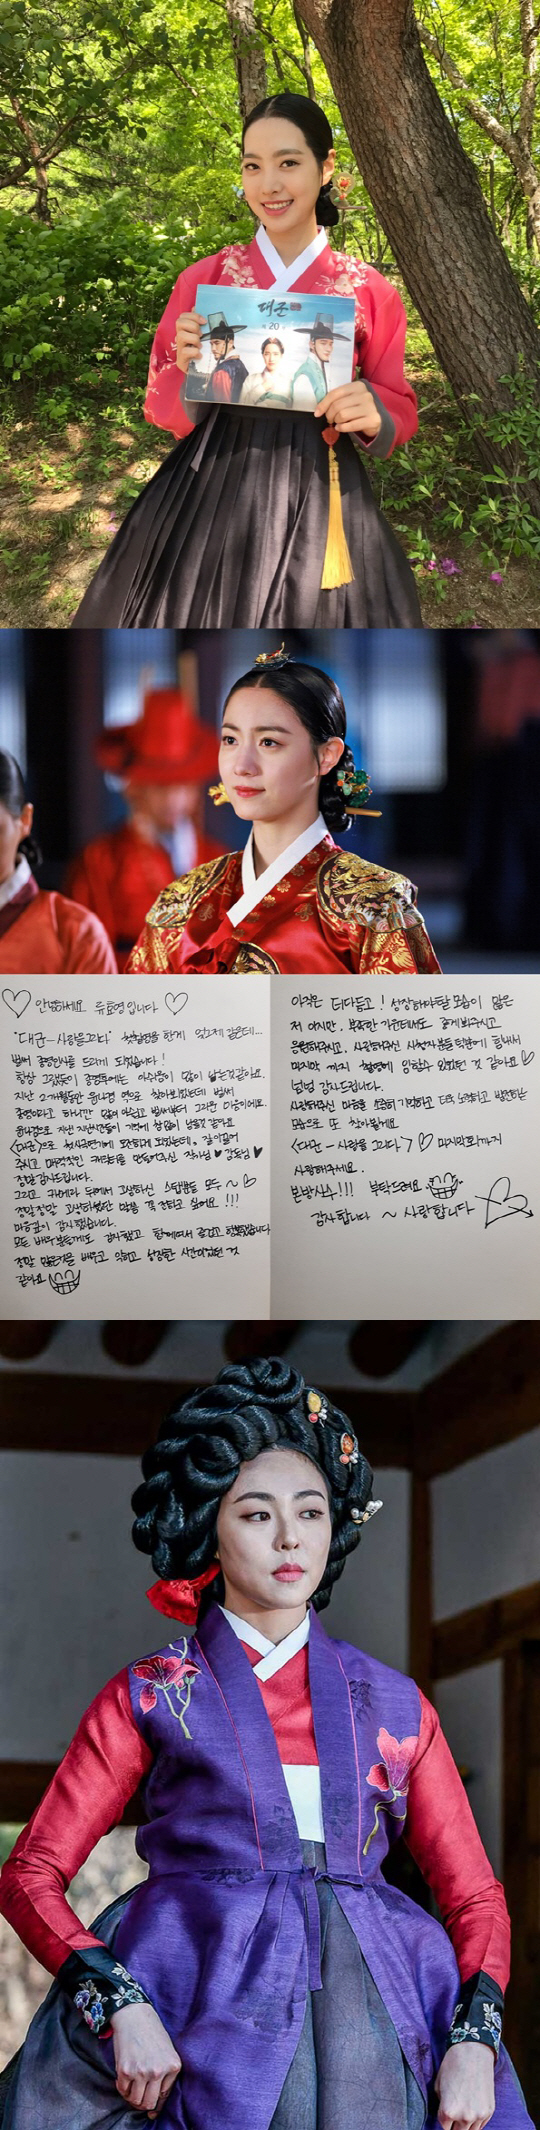 대군
20
안녕하세요 류효영입니다
"대군-사랑을그리다" 첫촬영을 한게 엊그제 같은데...
벌써 종영인사를 드리게 되었습니다!
항상 그랬듯이 종영후에는 아쉬움이 많이 남는것같아요.
지난 2개월동안 윤나겸 역으로 찾아뵈었는데 벌써
종영이라고 하니깐 많이 아쉽고 벌써부터 그리운 마음이에요.
윤나겸으로 지낸 지난시간들이 기억에 참많이 남을것 같아요
<대군>으로 첫사극연기에 도전하게 되었는데, 같이걸어
주시고 매력적인 캐릭터를 만들어주신 작가님 감독님
정말감사드립니다.
그리고 카메라 뒤에서 고생하신 스탭분들 모두 ~
정말정말 고생하셨단 말을 꼭 전하고 싶어요!!!
마음깊이 감사했습니다.
모든 배우분들에게도 감사했고 함께여서 즐겁고 행복했습니다
정말 많은것을 배우고 익히고 성장한 시간이었던 것
같아요
아직은 더다듬고! 성장해야할 모습이 많은
저 이지만, 부족한 가운데서도 좋게봐주시고
응원해주시고, 사랑해주신 시청자분들 덕분에 힘내서
마지막 까지 촬영에 임할수 있었던 것 같아요
넘넘 감사드립니다.
사랑해주신 마음을 소중히 기억하고 더욱 노력하고 발전하는
모습으로 또 찾아뵐게요.
<대군-사랑을 그리다> 마지막화까지
사랑해주세요.
본방사수!!! 부탁드려요
감사합니다 ~ 사랑합니다